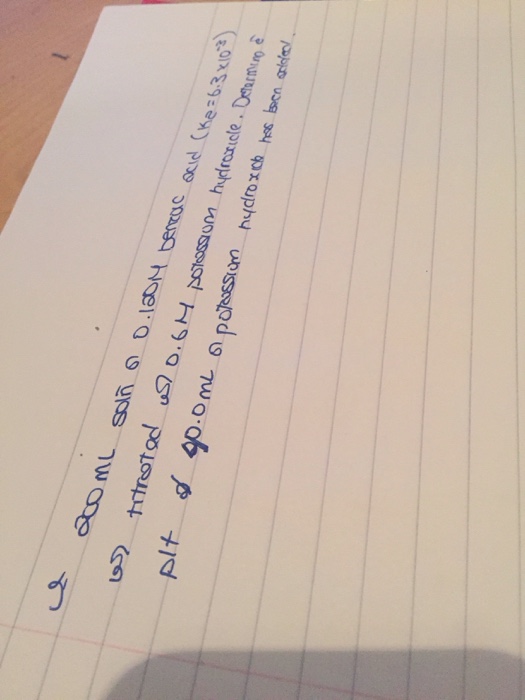 200mL soln of 0.120M benzoic acid (Ka = 6.3 x 10⁻⁵)
titrated w) 0.6M potassium hydroxide. Determine
40.0mL of potassium hydroxide has been added.